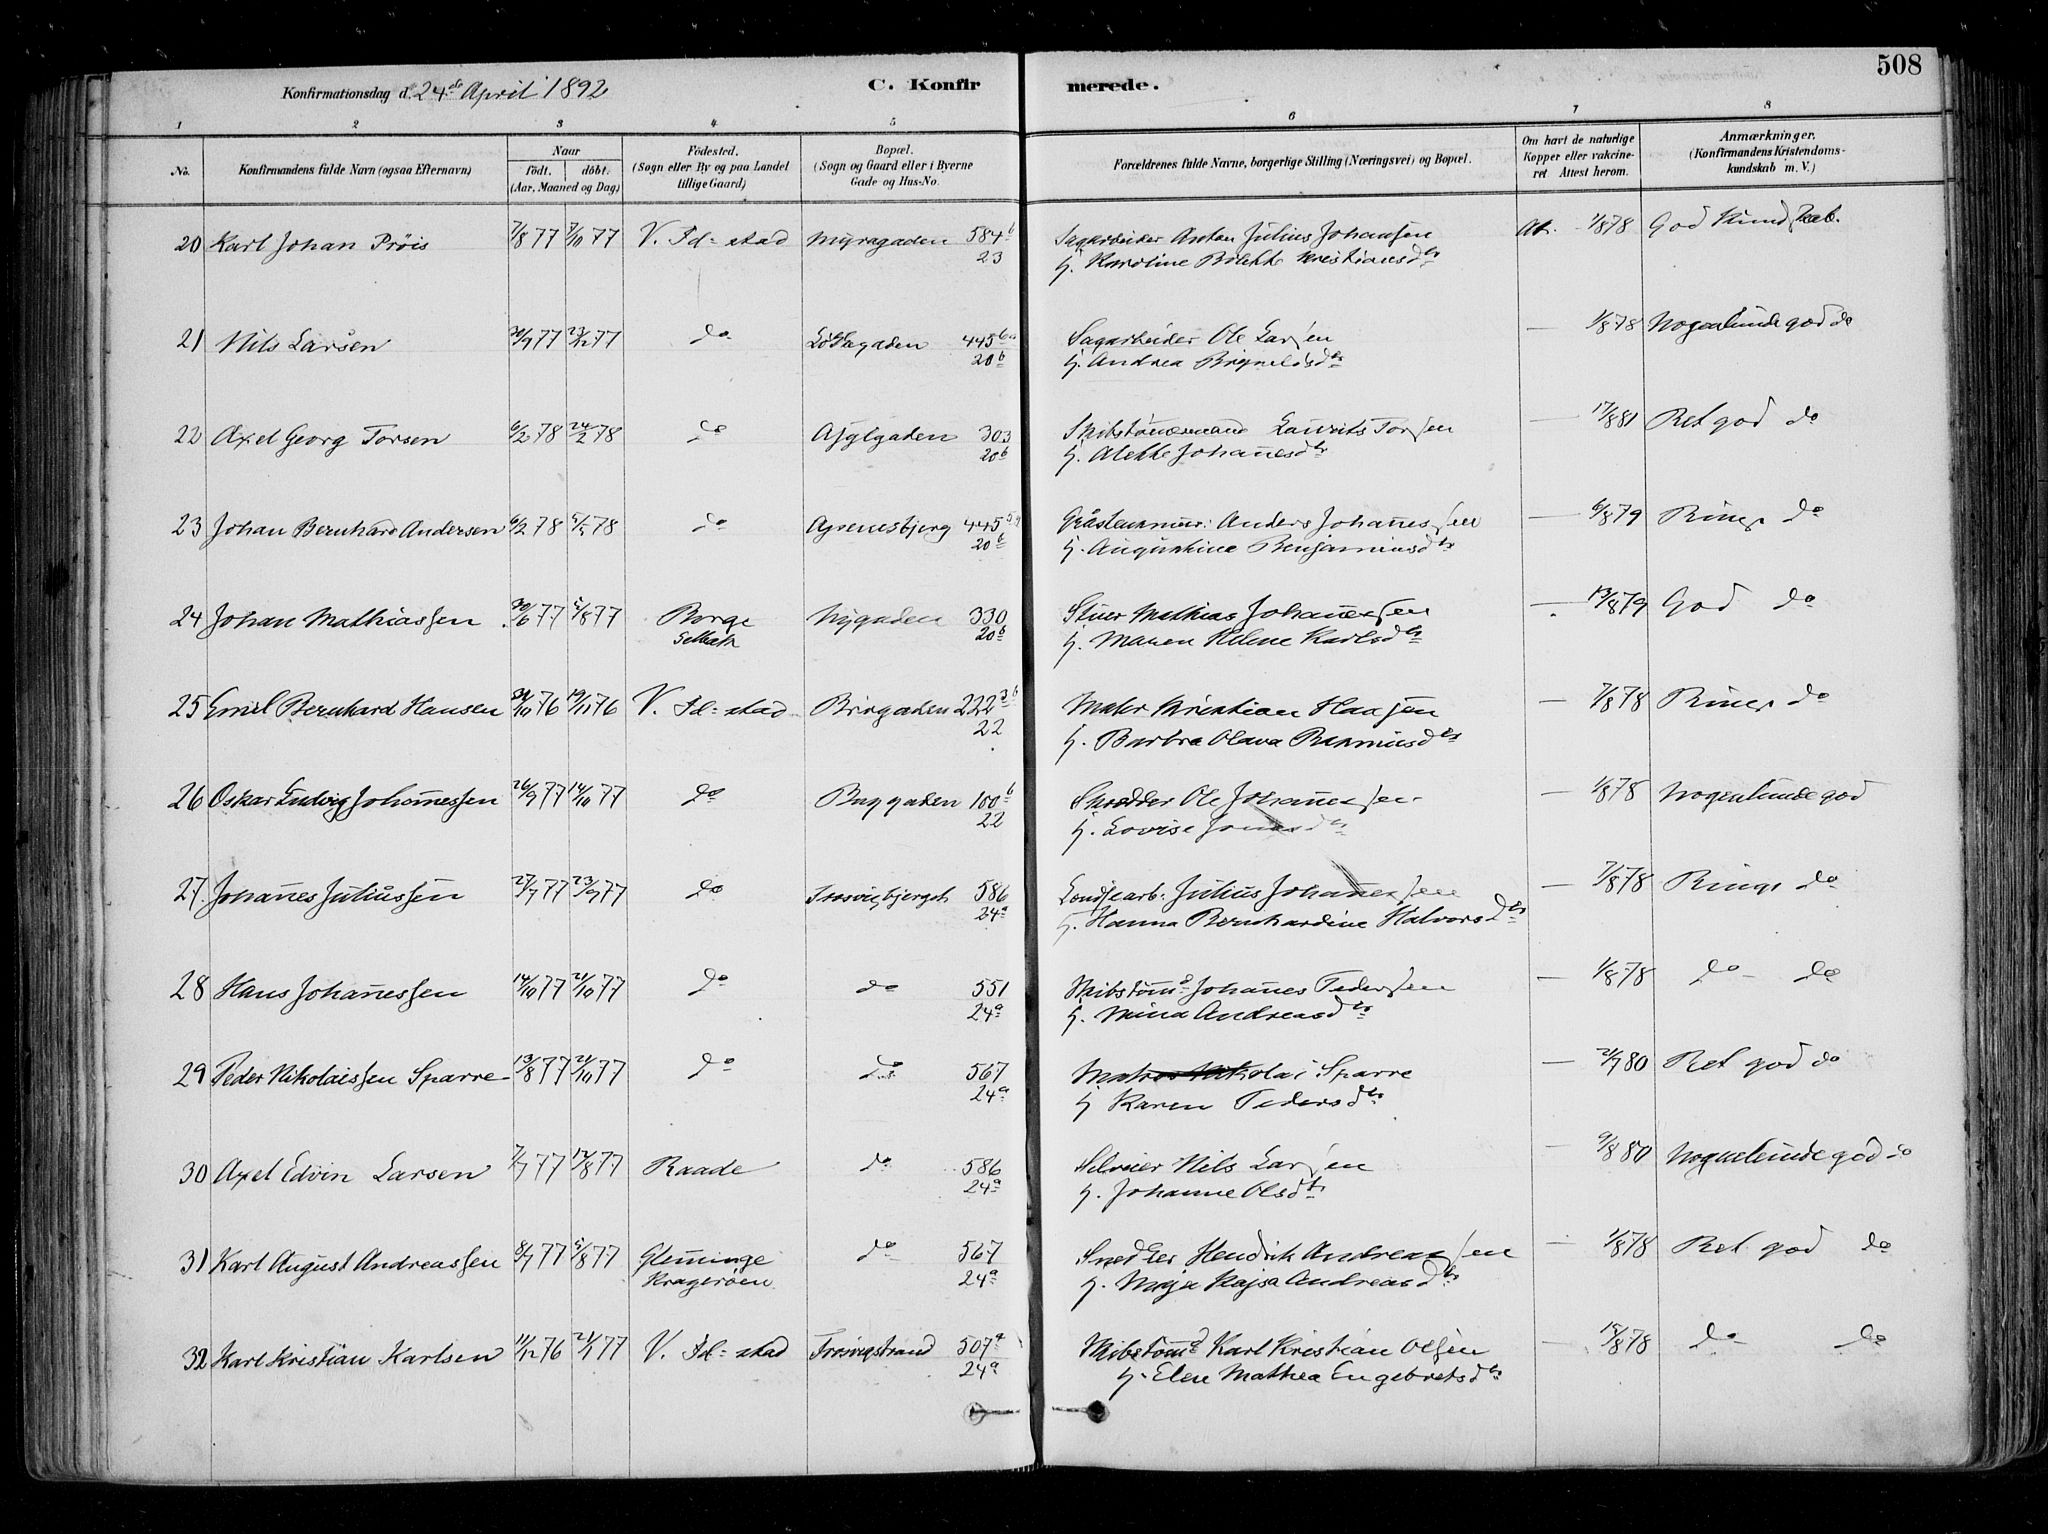 508
Konfirmationsdag d. 24de April 1892
C. Konfirmerede.
1 2 3 4 5 6 7 8
No. Konfirmandens fulde Navn (ogsaa Efternavn) Naar født. døbt. (Aar, Maaned og Dag) Födested. (Sogn eller By og paa Landet tillige Gaard) Bopæl. (Sogn og Gaard eller i Byerne Gade og Hus-No. Forældrenes fulde Navne, borgerlige Stilling (Næringsvei) og Bopæl. Om havt de naturlige Kopper eller vakcineret Attest herom. Anmærkninger. (Konfirmandens Kristendomskundskab m. V.)
20 Karl Johan Pröis 7/8 77 7/10 77 V. Fd=stad Myragaden 584 b Sagarbeider Anton Julius Johansen At. 1/8 78 God Kundskab.
23 H. Karoline Bolette Kristiansdtr
21 Nils Larsen 30/9 77 23/12 77 do 445 Sagarbeider Ole Larsen — 1/8 78 Nogenlunde god do
20 b H. Andrea Brynildsdtr
22 Axel Georg Torsen 6/2 78 24/2 78 do 303 Skibstömmermand Laurits Torsen — 17/8 81 Ret god do
20 b H. Alette Johannesdtr
23 Johan Bernhard Andersen 6/2 78 78 do 445 Anders Johannessen — 6/8 79 Ringe do
20 b H. Augustine Benjaminsdtr
24 Johan Mathiassen 30/6 77 5/8 77 Borge Nygaden 330 Stuer Mathias Johannessen — 13/8 79 God do
Selbak 20 b H. Maren Helene Karlsdtr
25 Emil Bernhard Hansen 31/10 76 19/11 76 V. Fd=stad Brogaden 222 3 b Maler Kristian Hansen — 7/8 78 Ringe do
22 H. Barbra Olava Rasmusdtr
26 Oskar Ludvig Johannessen 26/9 77 14/10 77 do Byggaden 100 b Skrædder Ole Johannessen — 1/8 78 Nogenlunde god
22 H. Lovise Jonasdtr
27. Johannes Juliussen 27/7 77 23/9 77 do Trosvigbjerget 586 Londsearb. Julius Johannessen — 7/8 78 Ringe do
24 a H. Hanna Bernhardine Halvorsdtr
28 Hans Johannessen 14/10 77 21/10 77 do do 551 Skibstömd Johannes Pedersen — 1/8 78 do do
24 a H. Mina Andreasdtr
29 Peder Nikolaissen Sparre 13/8 77 21/10 77 do do 567 Matros Nikolai Sparre — 21/7 80 Ret god do
24 a H Karen Pedersdtr
30 Axel Edvin Larsen 7/7 77 12/8 77 Raade do 586 Nils Larsen — 9/8 80 Nogenlunde god do
24 a H. Johanne Olsdtr
31 Karl August Andreassen 8/7 77 5/8 77 Glemminge do 567 Snedker Hendrik Andreassen — 1/8 78 Ret god do
Kragerøen 24 a H. Maja Kajsa Andreasdtr
32 Karl Kristian Karlsen 11/12 76 21/1 77 V. Fd=stad Trosvigstrand 507 a Skibstömd Karl Kristian Olsen — 15/8 78 do do
24 a H. Elen Mathea Engebretsdtr